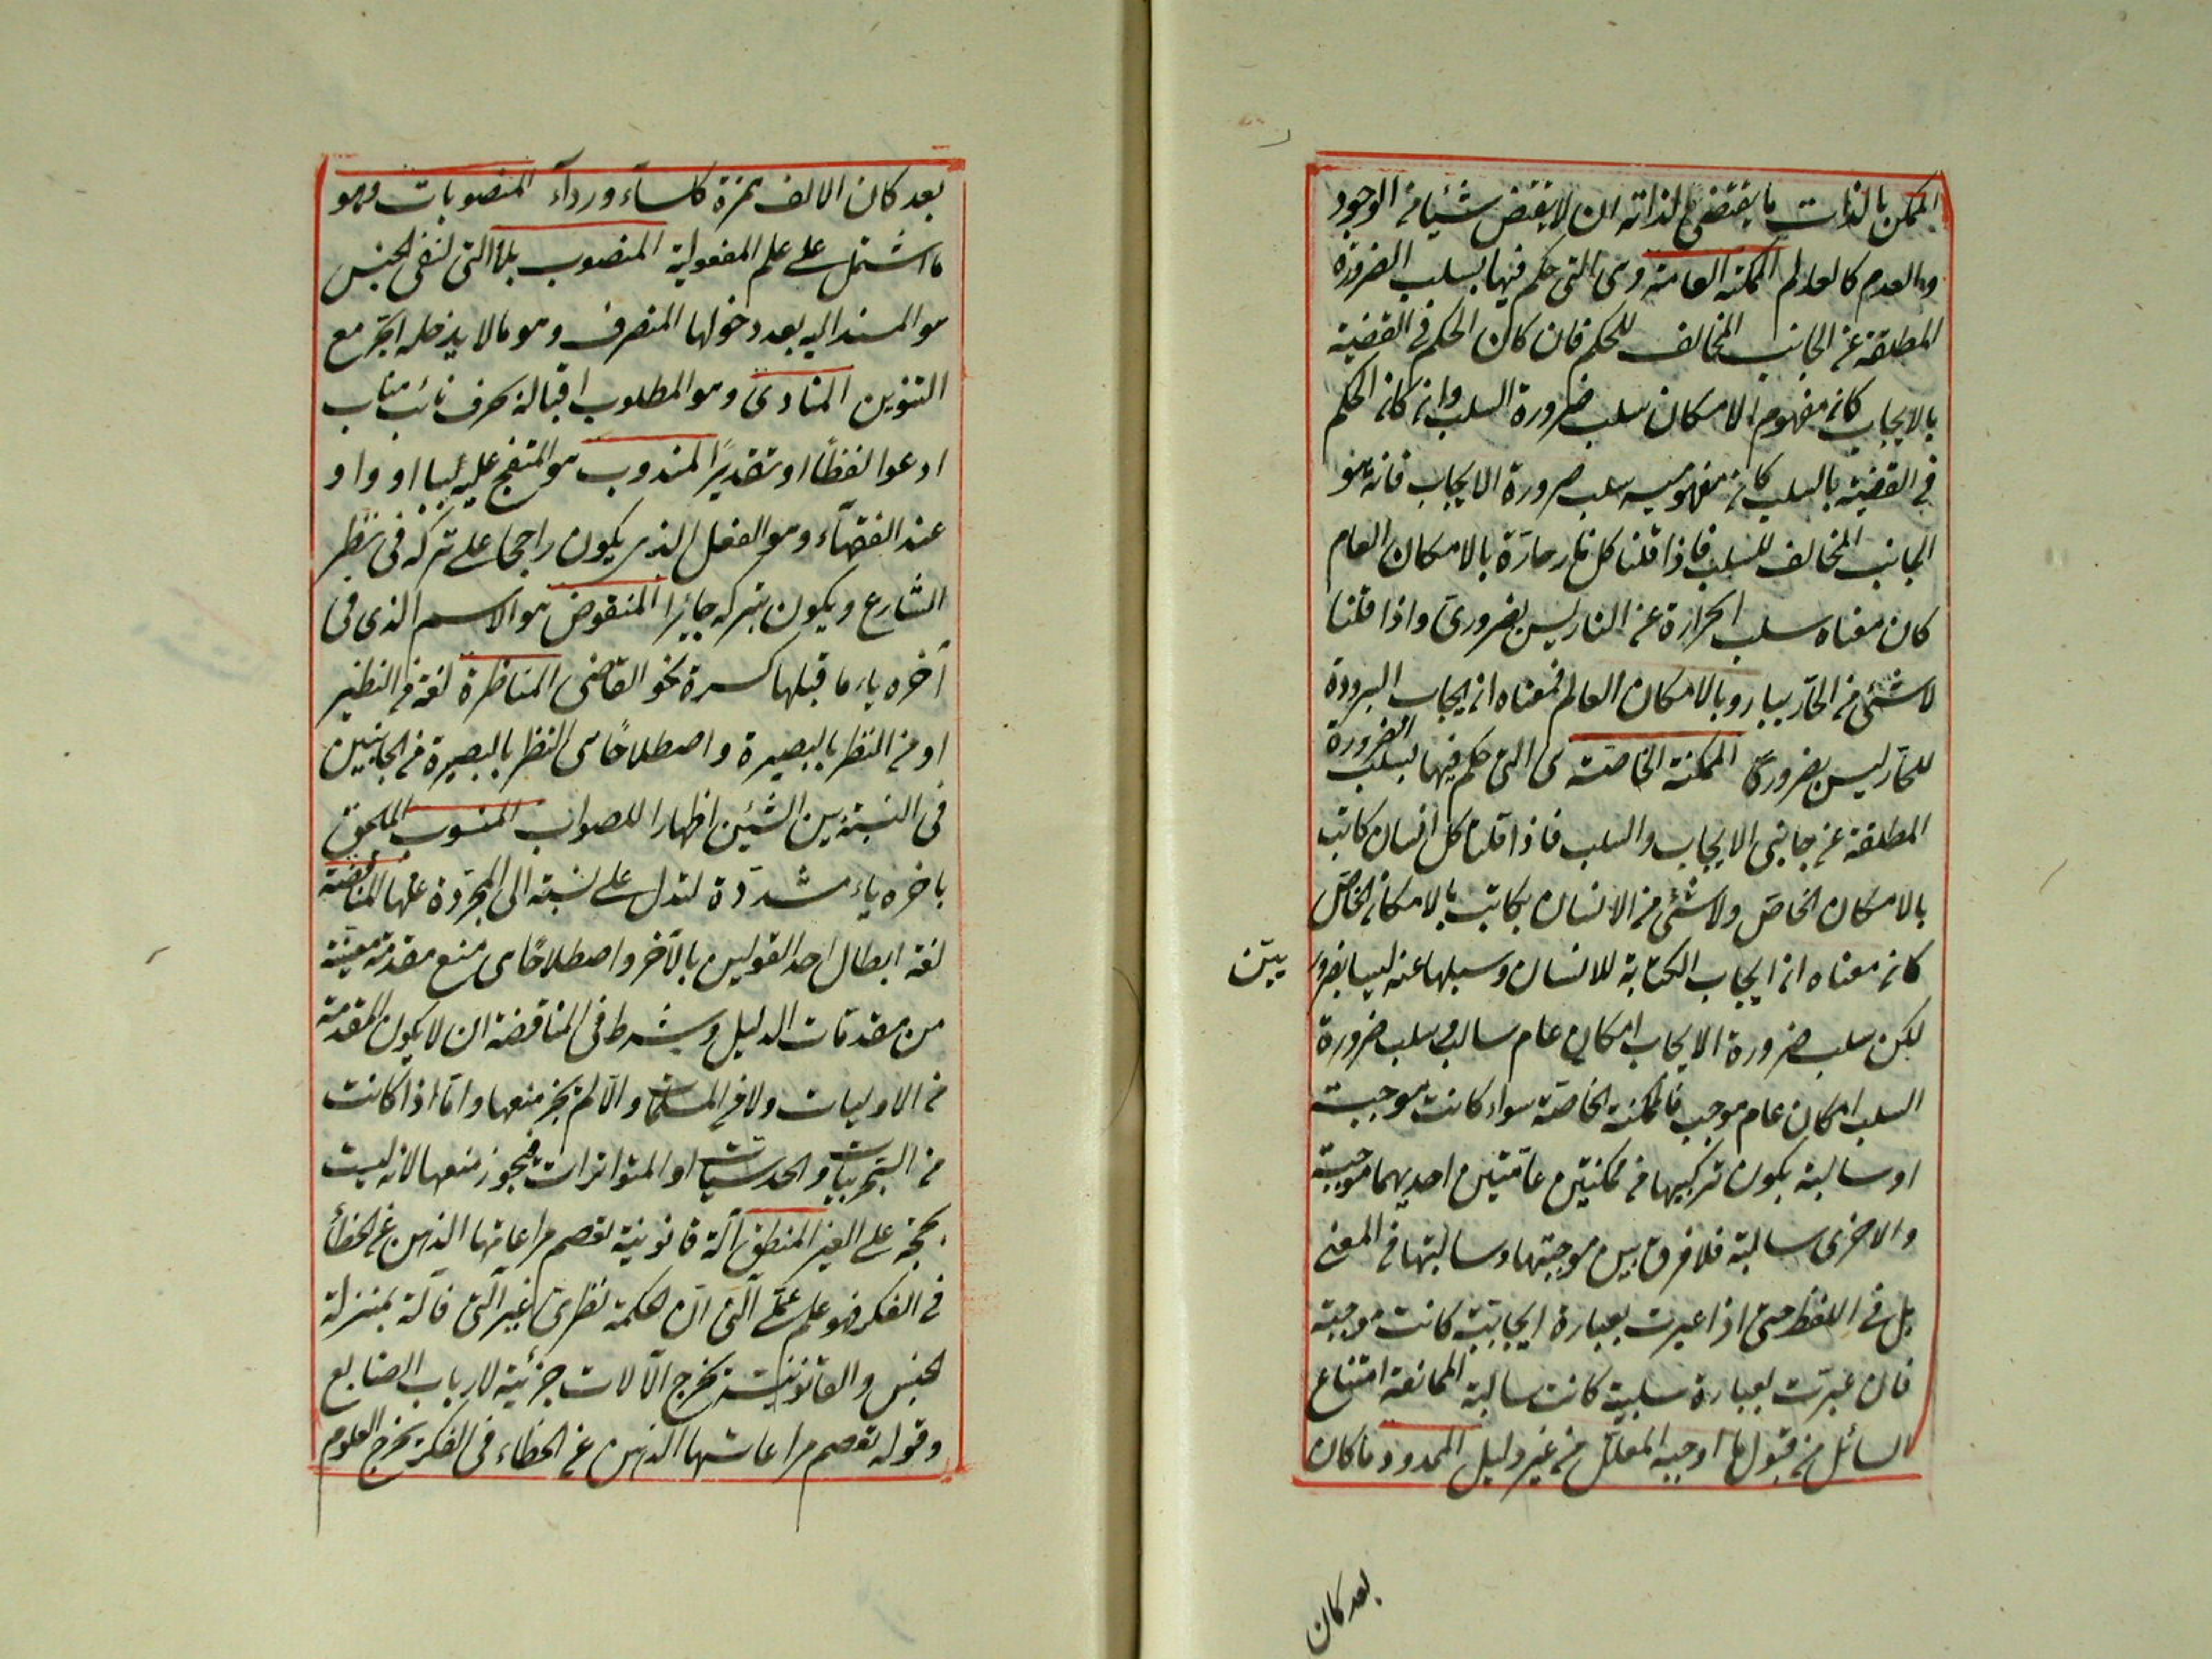 الممكن بالذات ما يقتضى لذاته ان لا يقتضى شيئا من الوجود
والعدم كالعالم الممكنة العامة وهى التى حكم فيها بسلب الضرورة
المطلقة عن الجانب المخالف للحكم فان كان الحكم فى القضية
بالايجاب كان مفهوم الامكان سلب ضرورة السلب وان كان الحكم
فى القضية بالسلب كان مفهومه سلب ضرورة الايجاب فانه هو
الجانب المخالف للسلب فاذا قلنا كل نار حارة بالامكان العام
كان معناه سلب الحرارة عن النار ليس بضرورى واذا قلنا
لا شئ من الحار ببارد بالامكان العام فمعناه ان ايجاب البرودة
للحار ليس بضرورى الممكنة الخاصة هى التى حكم فيها بسلب الضرورة
المطلقة عن جانبى الايجاب والسلب فاذا قلنا كل انسان كاتب
بالامكان الخاص ولا شئ من الانسان بكاتب بالامكان الخاص
كان معناه ان ايجاب الكتابة للانسان وسلبها عنه ليسا بضرور يين
لكن سلب ضرورة الايجاب امكان عام سالب وسلب ضرورة
السلب امكان عام موجب فالممكنة الخاصة سواء كانت موجبة
او سالبة يكون تركيبها من ممكنتين عامتين احديهما موجبة
والاخرى سالبة فلا فرق بين موجبتها وسالبتها فى المعنى
بل فى اللفظ حتى اذا عبرت بعبارة ايجابية كانت موجبة
فان عبرت بعبارة سلبية كانت سالبة الممانعة امتناع
السائل من قبول ما اوجبه المعلل من غير دليل الممدود ما كان
بعد كان
بعد كان الالف همزة كلساء ورداء المنصوبات هو
ما اشتمل على علم المفعولية المنصوب بلا التى لنفى الجنس
هو المسند اليه بعد دخولها المنصرف وهو ما لا يدخله الجر مع
التنوين المنادى وهو المطلوب اقباله بحرف نائب مناب
ادعوا لفظا او تقديرا المندوب هو المتفجع عليه بيا او واو
عند الفقهاء وهو الفعل الذى يكون راجحا على تركه فى نظر
الشارع ويكون تركه جايزا المنقوض هو الاسم الذى فى
آخره ياء ما قبلها كسرة نحو القاضى المناظرة لغة من النظير
او من النظر بالبصيرة واصطلاحا هى النظر بالبصيرة من الجانبين
فى النسبة بين الشيئين اظهارا للصواب المنسوب الملحق
باخره ياء مشددة لتدل على نسبته الى المجردة عنها المناقضة
لغة ابطال احد القولين بالآخر واصطلاحا هى منع مقدمة معينة
من مقدمات الدليل وشرط فى المناقضة ان لا يكون المقدمة
من الاوليات ولا من المسلمات والا لم يجز منعها واما اذا كانت
من التجربيات والحدسيات او المتواترات فيجوز منعها لانه ليست
بحجة على الغير المنطق آلة قانونية تعصم مراعاتها الذهن عن الخطأ
فى الفكر فهو علم عملى آلى كما ان الحكمة نظرى غير آلى فآلة بمنزلة
الجنس والقانونية يخرج الآلات جزئية لارباب الصنايع
وقوله تعصم مراعاتها الذهن عن الخطاء فى الفكر يخرج العلوم